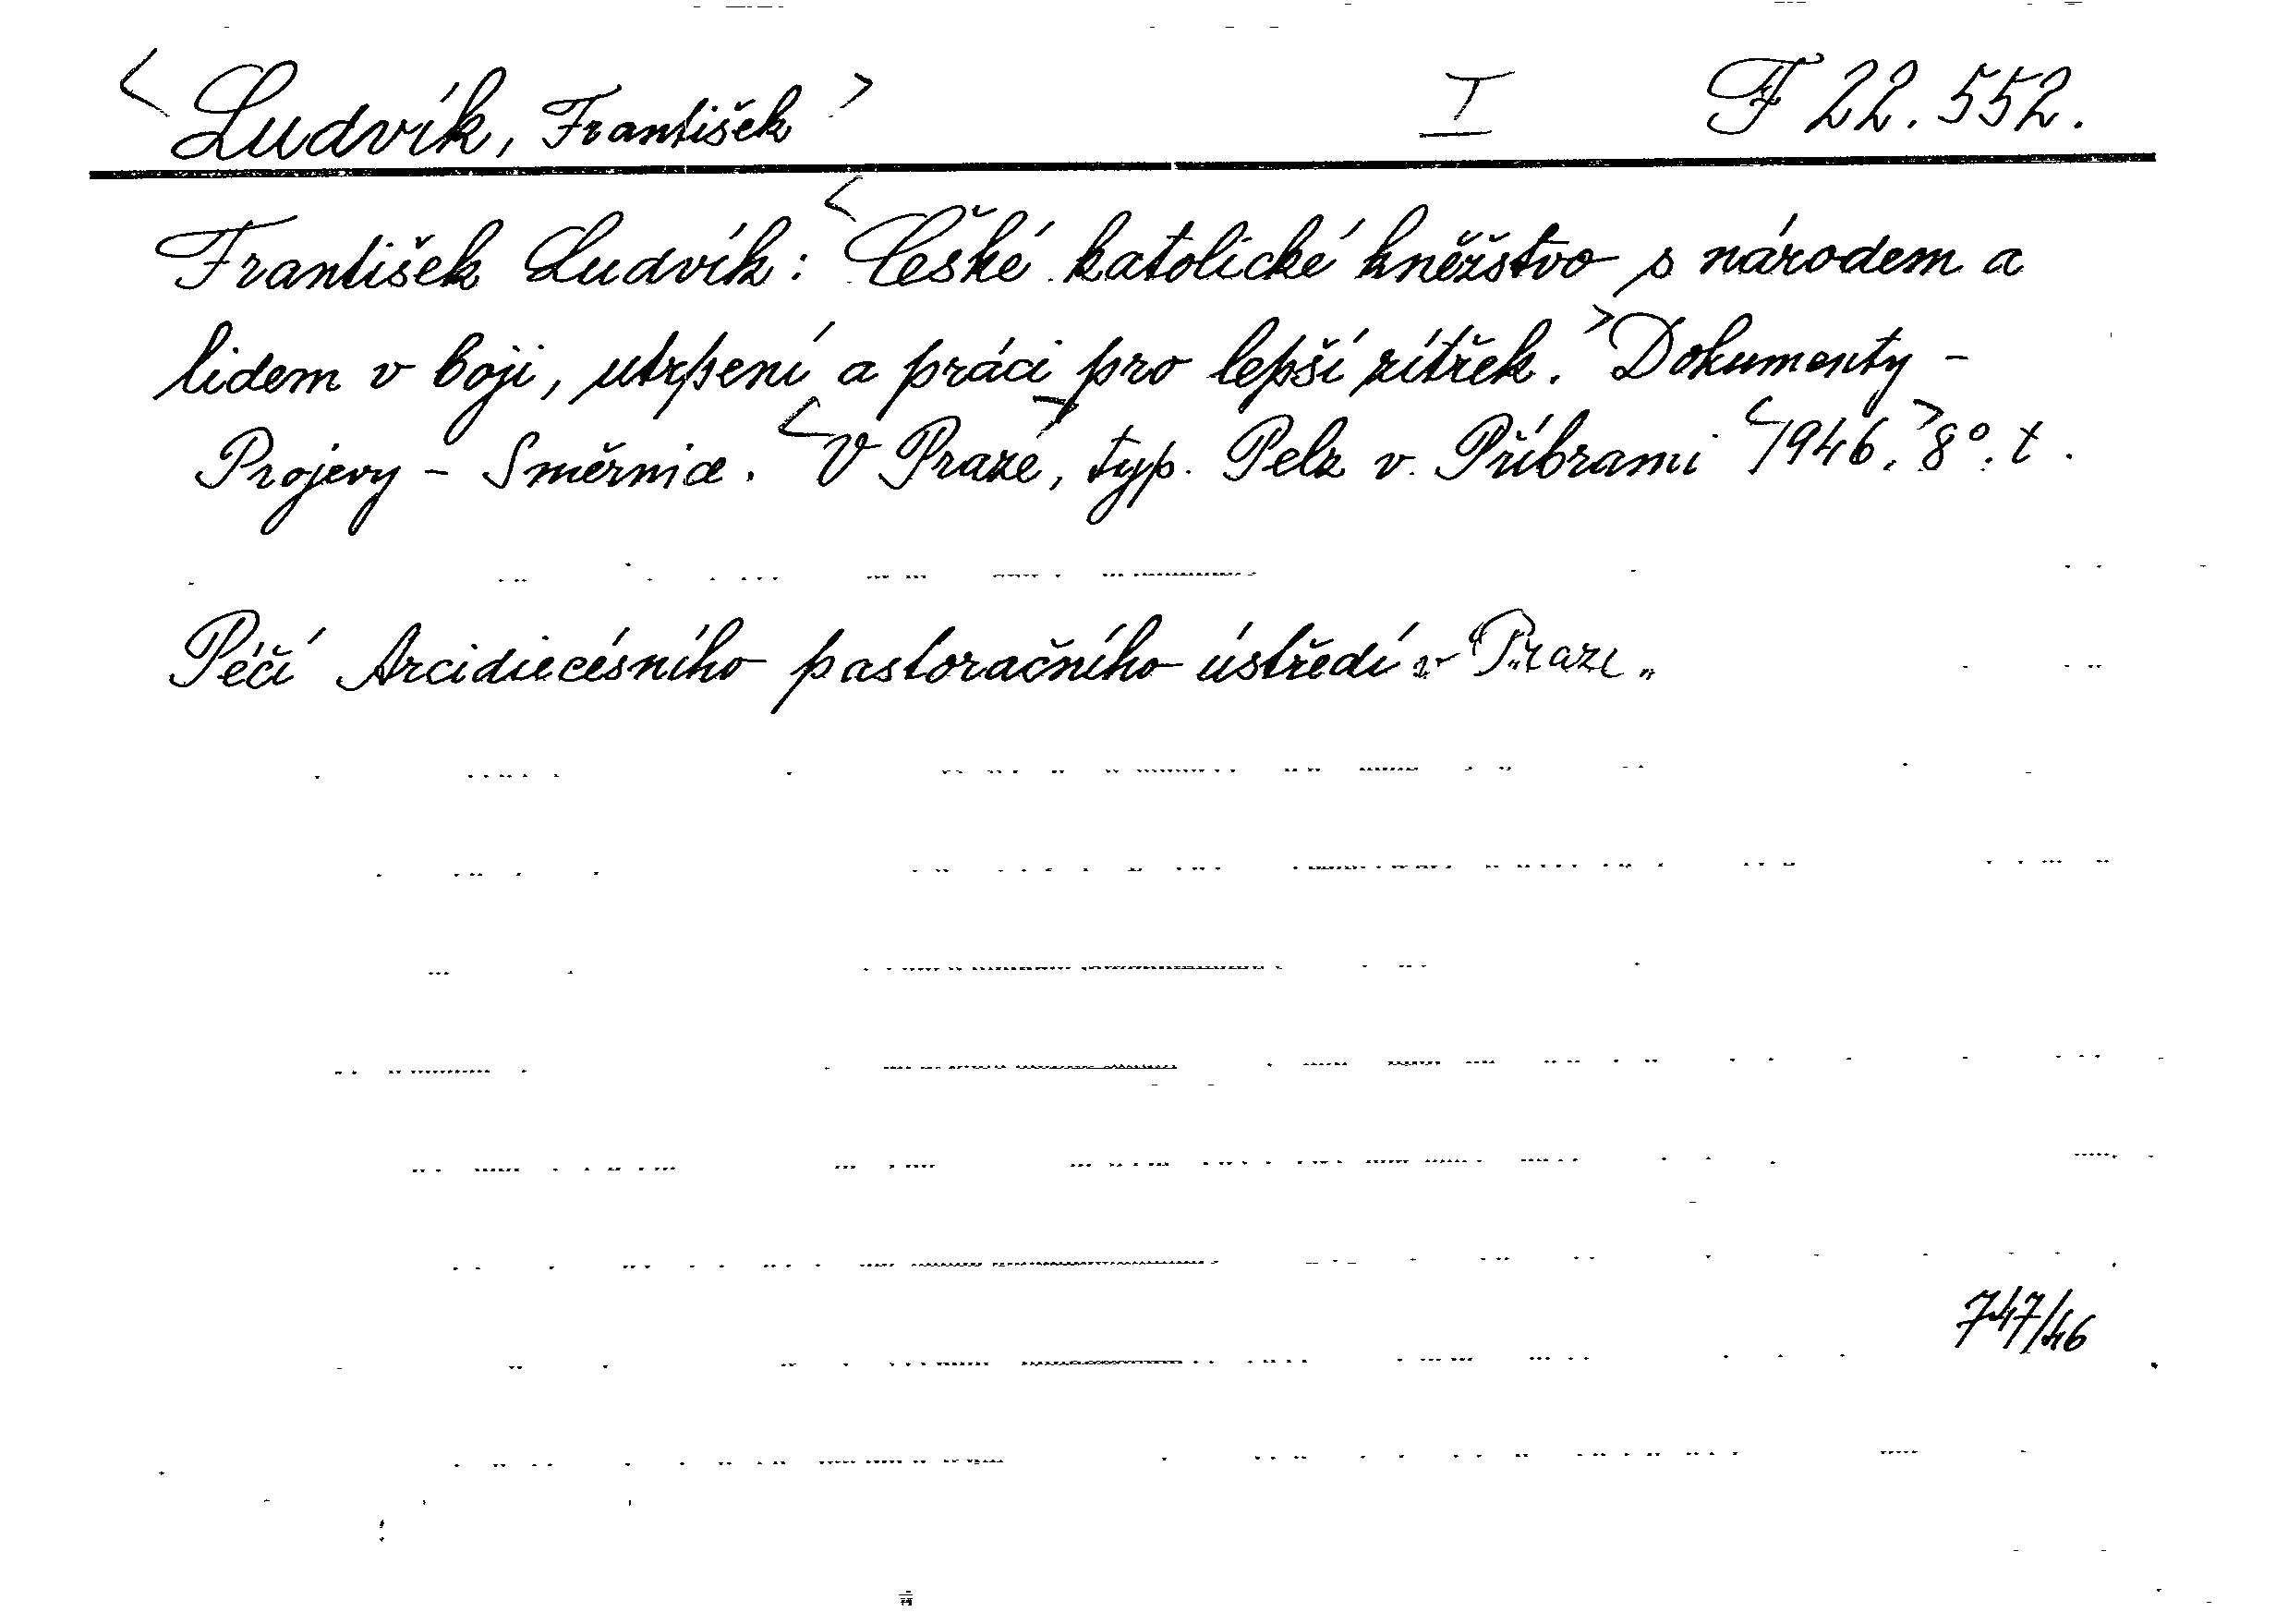 <Ludvík, František> I F 22.552.
František Ludvík: <České katolické kněžstvo s národem a
lidem v boji, utrpení a práci pro lepší zítřek.> Dokumenty -
Projevy - Směrnice. <V Praze>, typ. Pelz v Příbrami <1946.> 8°. t.
Péčí Arcidiecésního pastoračního ústředí v Praze.
747/46